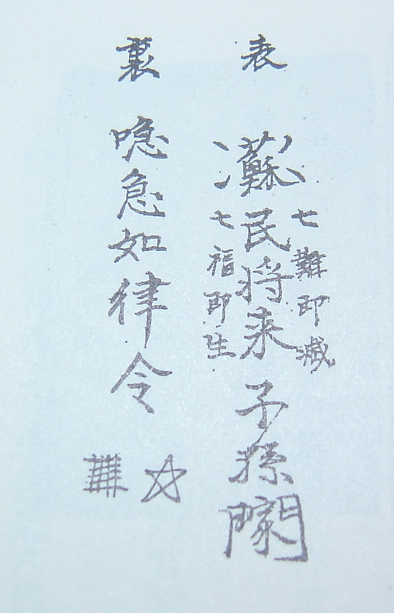 表
七難即滅
蘇民将来子孫門
七福即生
裏
急如律令